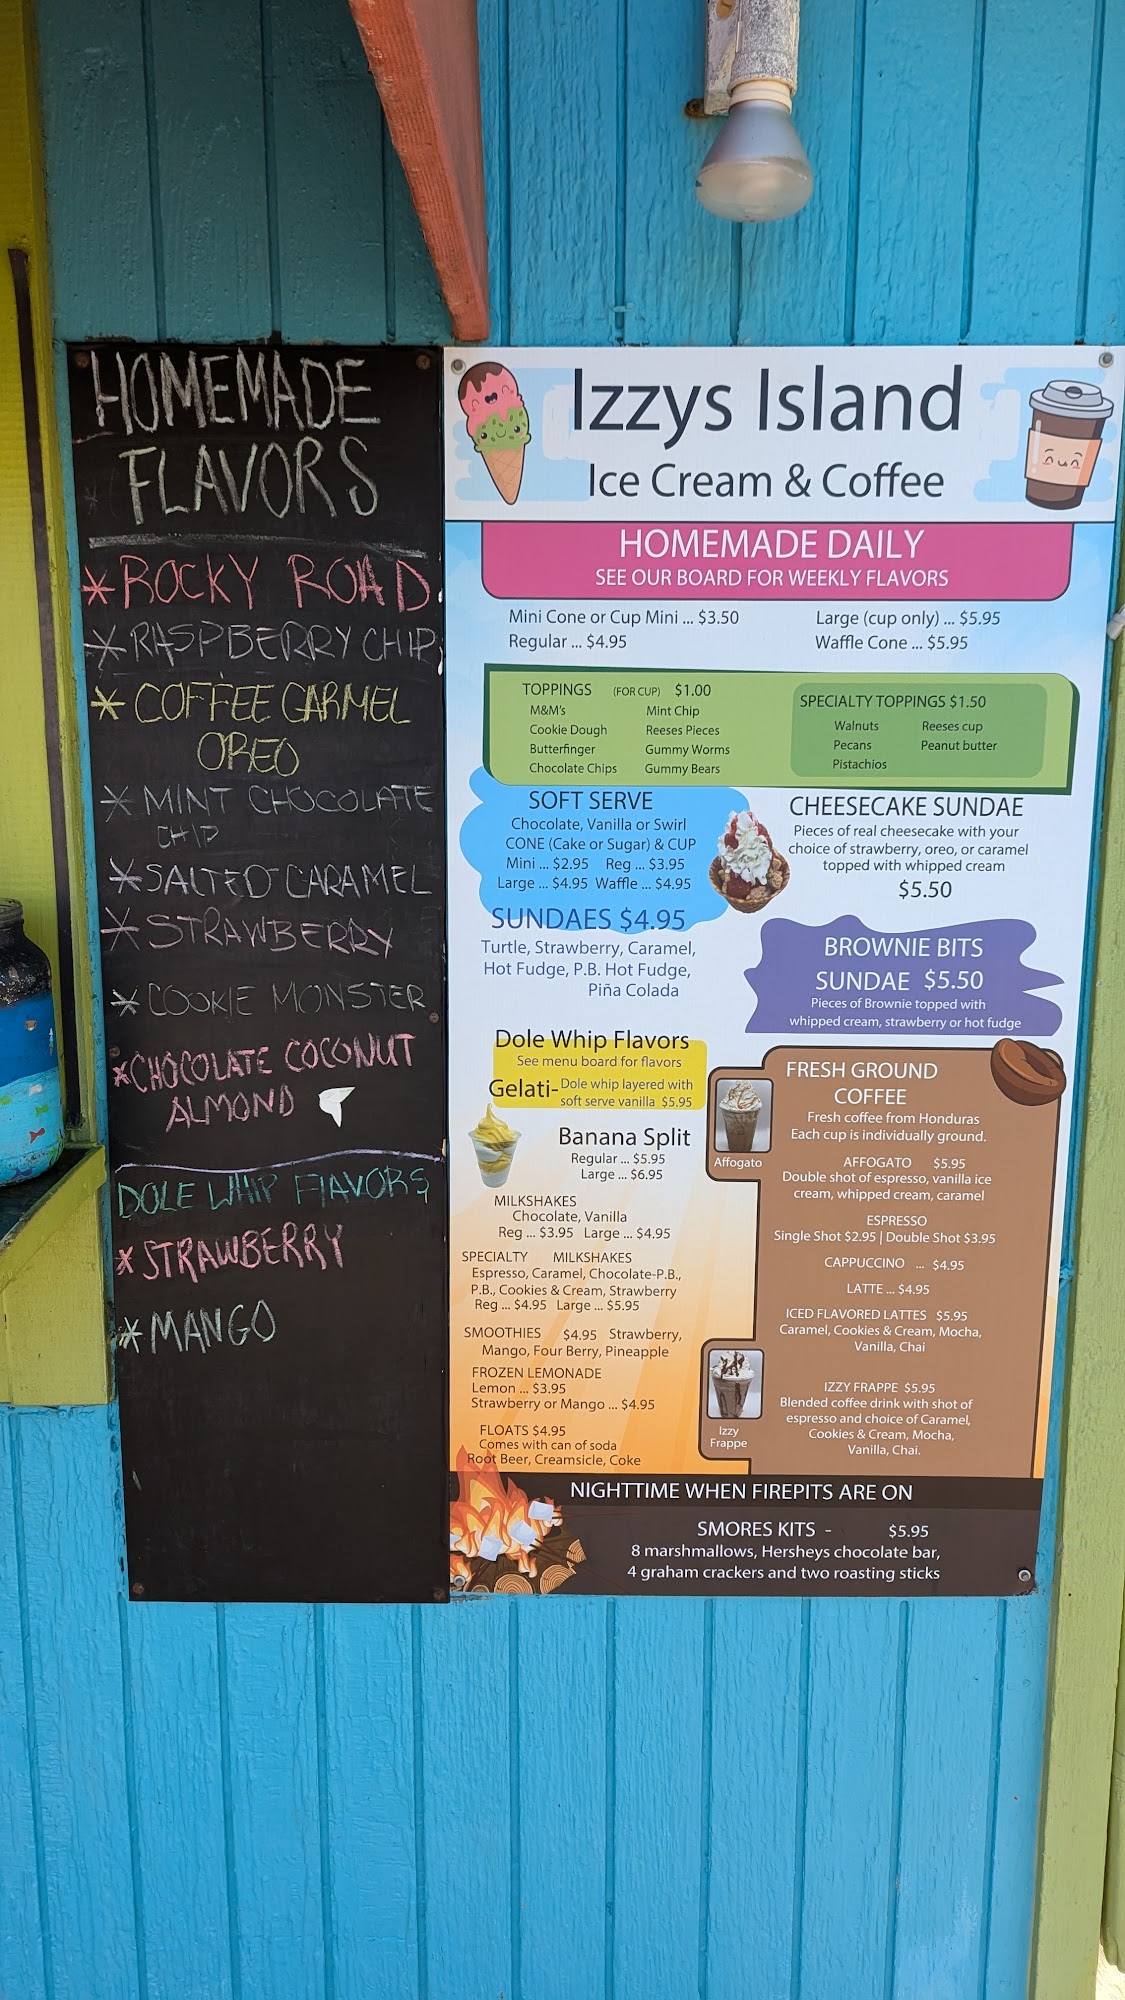 HOMEMADE
FLAVORS
*ROCKY ROAD
*RASPBERRY CHIP
*COFFEE CARMEL
OREO
*MINT CHOCOLATE
CHIP
*SALTED CARAMEL
*STRAWBERRY
*COOKIE MONSTER
*CHOCOLATE COCONUT
ALMOND
DOLE WHIP FLAVORS
*STRAWBERRY
*MANGO
Izzys Island
Ice Cream & Coffee
HOMEMADE DAILY
SEE OUR BOARD FOR WEEKLY FLAVORS
Mini Cone or Cup Mini ... $3.50
Regular ... $4.95
Large (cup only) ... $5.95
Waffle Cone ... $5.95
TOPPINGS (FOR CUP) $1.00
M&M's
Cookie Dough
Butterfinger
Chocolate Chips
Mint Chip
Reeses Pieces
Gummy Worms
Gummy Bears
SPECIALTY TOPPINGS $1.50
Walnuts
Pecans
Pistachios
Reeses cup
Peanut butter
SOFT SERVE
Chocolate, Vanilla or Swirl
CONE (Cake or Sugar) & CUP
Mini ... $2.95 Reg ... $3.95
Large ... $4.95 Waffle ... $4.95
SUNDAES $4.95
Turtle, Strawberry, Caramel,
Hot Fudge, P.B. Hot Fudge,
Piña Colada
CHEESECAKE SUNDAE
Pieces of real cheesecake with your
choice of strawberry, oreo, or caramel
topped with whipped cream
$5.50
BROWNIE BITS
SUNDAE $5.50
Pieces of Brownie topped with
whipped cream, strawberry or hot fudge
Dole Whip Flavors
See menu board for flavors
Gelati- Dole whip layered with
soft serve vanilla $5.95
Banana Split
Regular ... $5.95
Large ... $6.95
MILKSHAKES
Chocolate, Vanilla
Reg ... $3.95 Large ... $4.95
SPECIALTY MILKSHAKES
Espresso, Caramel, Chocolate-P.B.,
P.B., Cookies & Cream, Strawberry
Reg ... $4.95 Large ... $5.95
SMOOTHIES $4.95 Strawberry,
Mango, Four Berry, Pineapple
FROZEN LEMONADE
Lemon ... $3.95
Strawberry or Mango ... $4.95
FLOATS $4.95
Comes with can of soda
Root Beer, Creamsicle, Coke
FRESH GROUND
COFFEE
Fresh coffee from Honduras
Each cup is individually ground.
Affogato
AFFOGATO $5.95
Double shot of espresso, vanilla ice
cream, whipped cream, caramel
ESPRESSO
Single Shot $2.95 | Double Shot $3.95
CAPPUCCINO ... $4.95
LATTE ... $4.95
ICED FLAVORED LATTES $5.95
Caramel, Cookies & Cream, Mocha,
Vanilla, Chai
Izzy
Frappe
IZZY FRAPPE $5.95
Blended coffee drink with shot of
espresso and choice of Caramel,
Cookies & Cream, Mocha,
Vanilla, Chai.
NIGHTTIME WHEN FIREPITS ARE ON
SMORES KITS - $5.95
8 marshmallows, Hersheys chocolate bar,
4 graham crackers and two roasting sticks